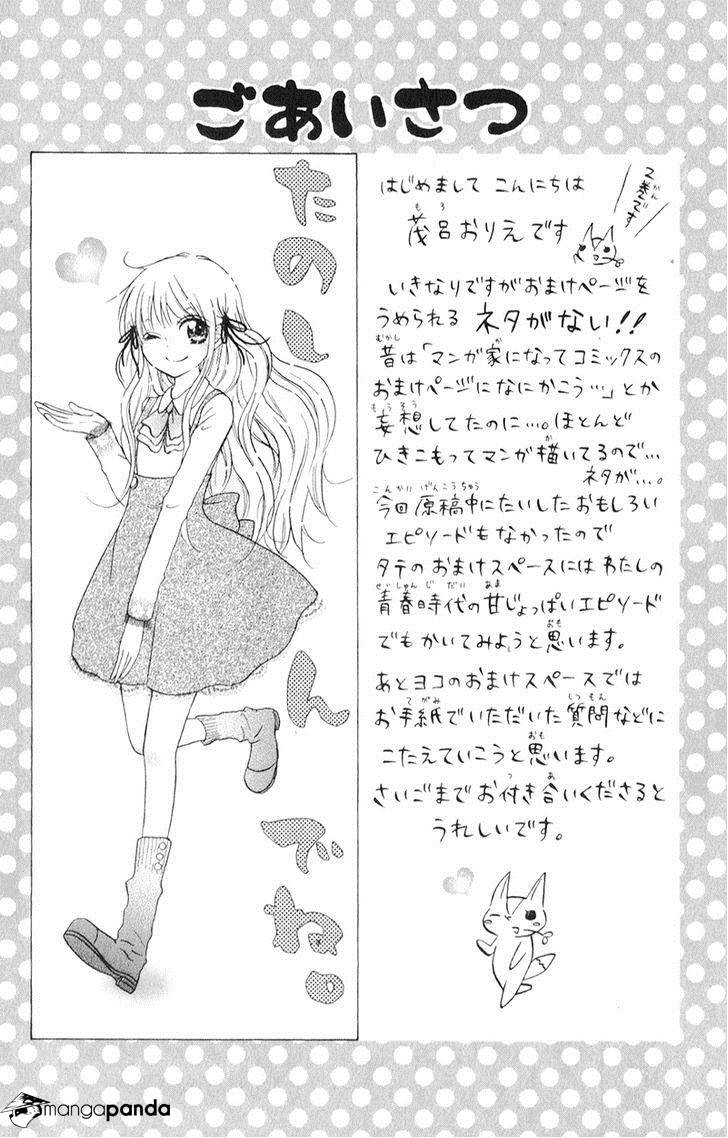 ごあいさつ
たのしんでね。
はじめまして こんにちは
2巻です
かん
茂呂おりえです
もろ
いきなりですがおまけページを
うめられる ネタがない!!
昔は「マンガ家になってコミックスの
むかし
か
おまけページになにかこう…」とか
妄想してたのに…。ほとんど
もうそう
ひきこもってマンガ描いてるので…
か
ネタが…。
今回原稿中にたいしたおもしろい
こんかい げんこうちゅう
エピソードもなかったので
タテのおまけスペースにはわたしの
青春時代の甘じょっぱいエピソード
せいしゅんじだい あま
でもかいてみようと思います。
おも
あとヨコのおまけスペースでは
お手紙でいただいた質問などに
てがみ
しつもん
こたえていこうと思います。
おも
さいごまでお付き合いくださると
つ あ
うれしいです。
mangapanda